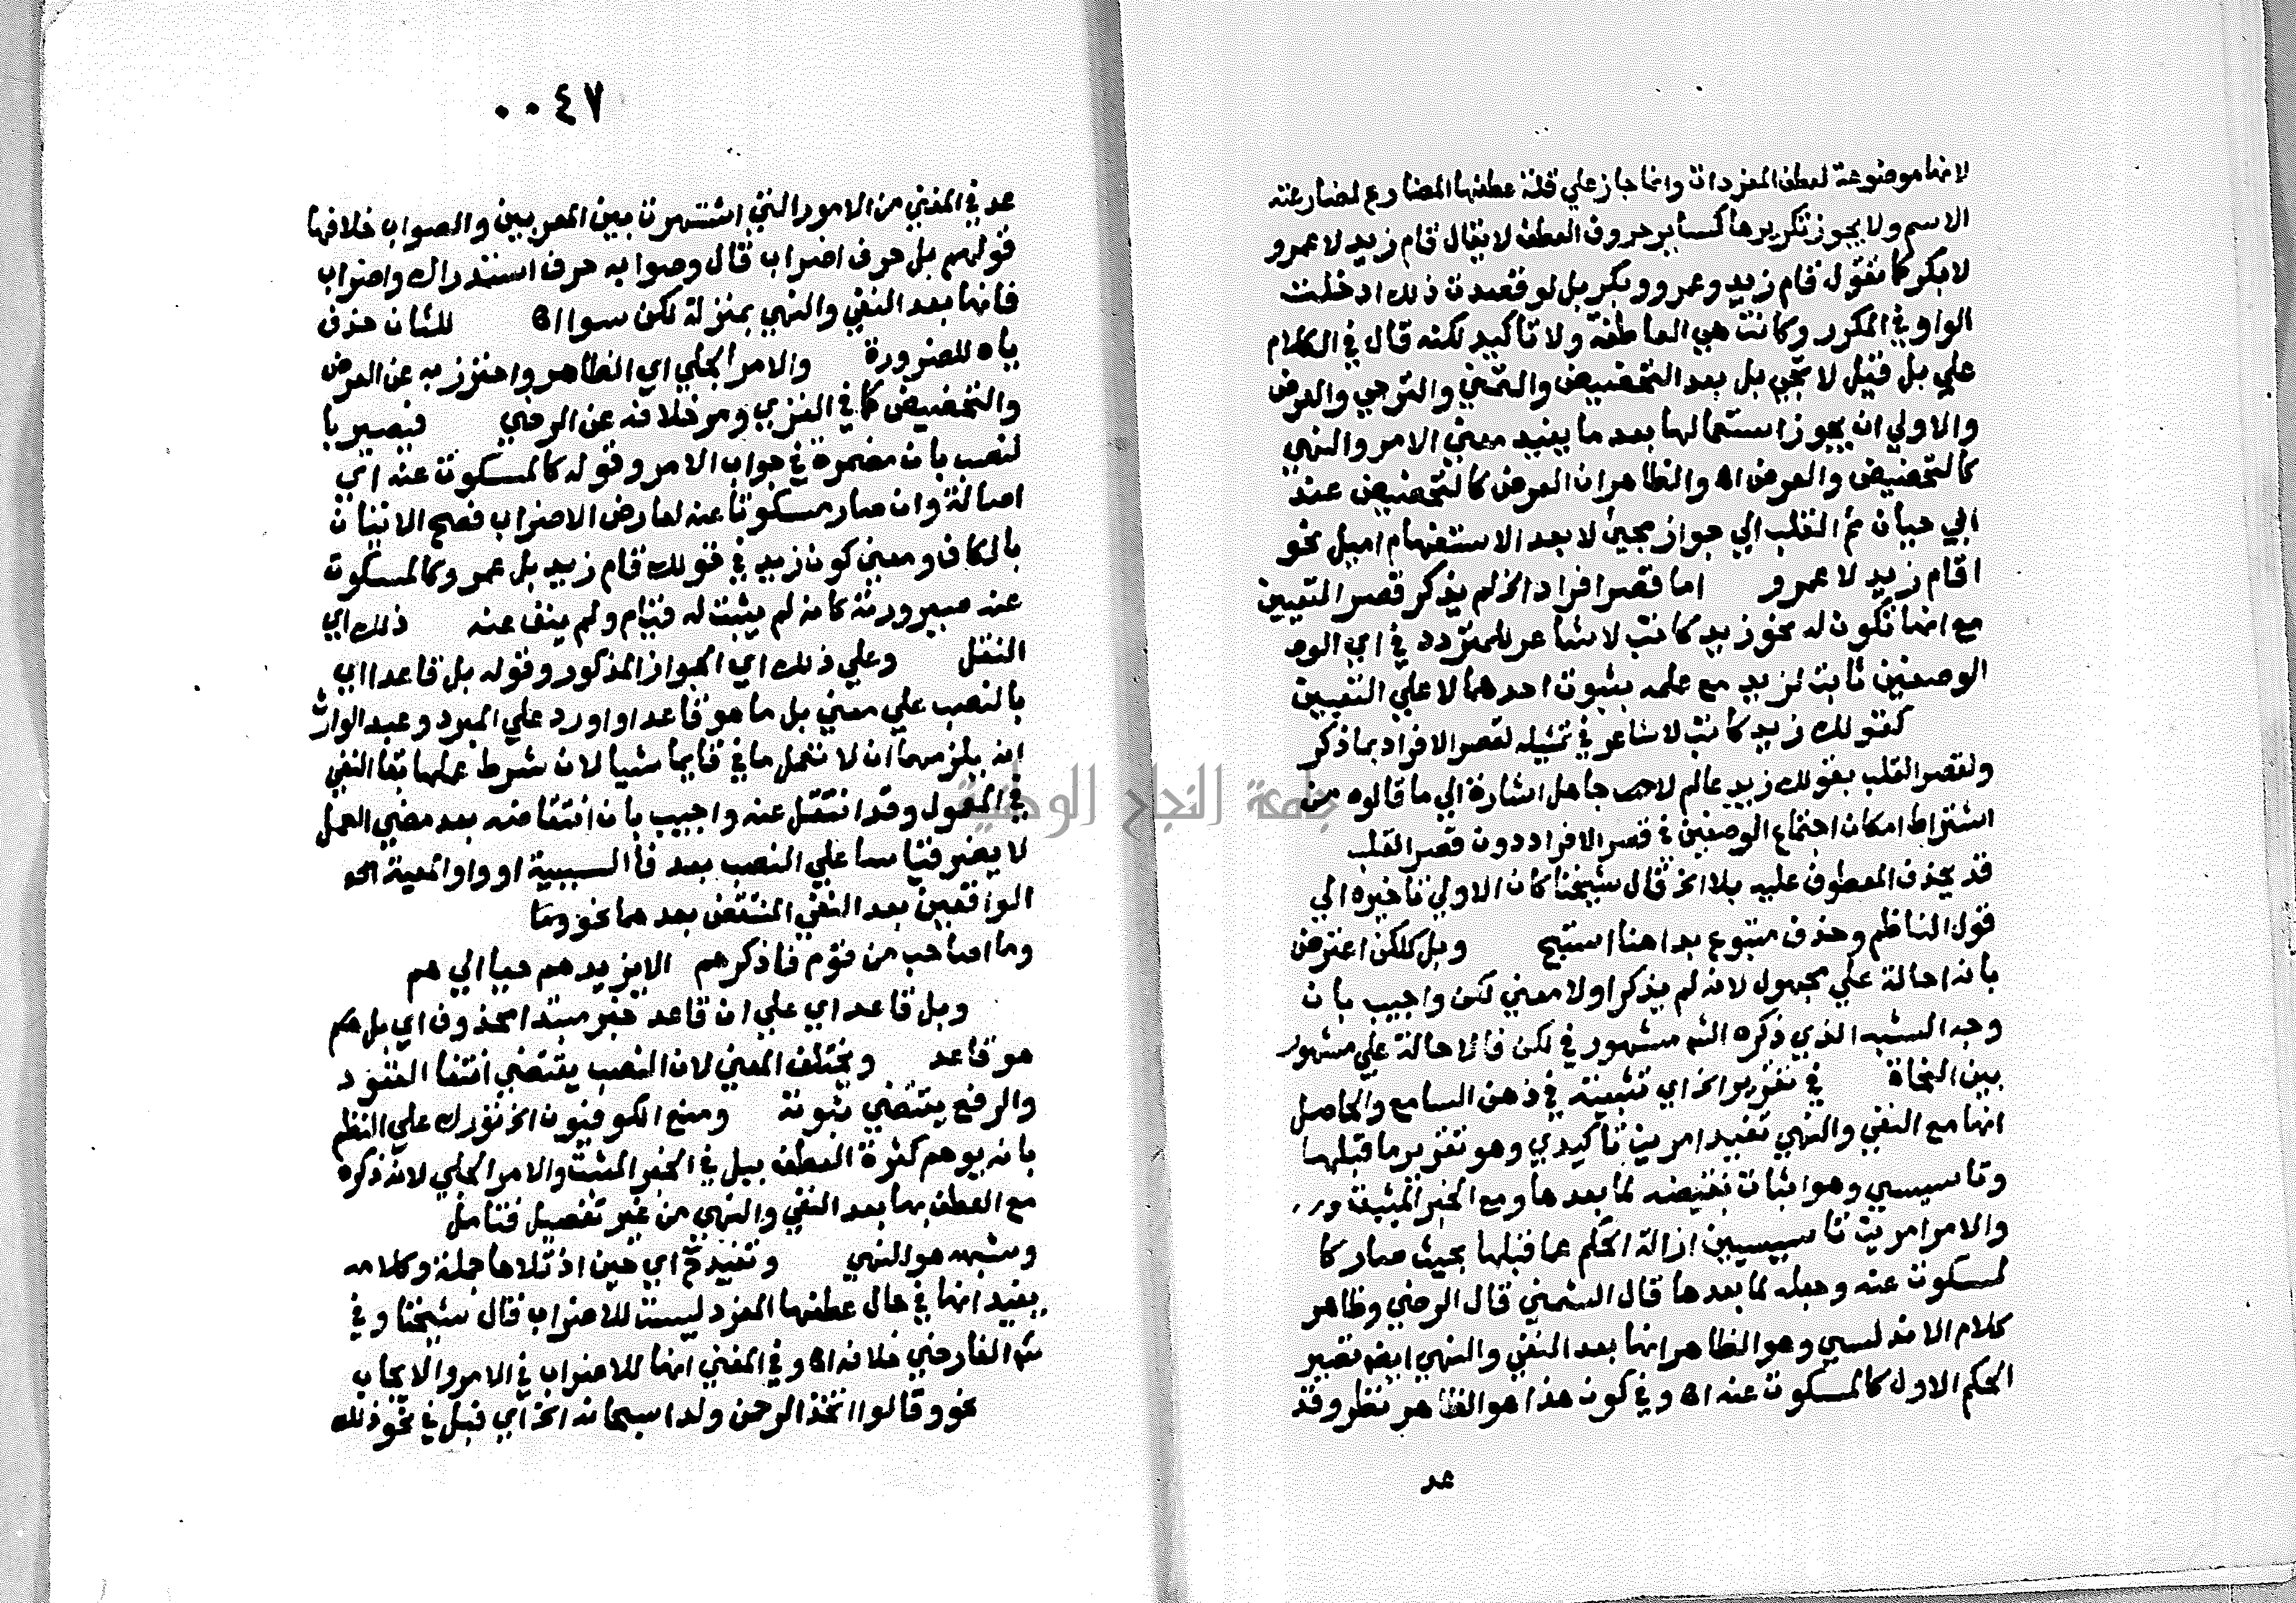 لانها موضوعة لعطف المفردات وانما جاز علي قلة عطفها المضارع لمضارعته
الاسم ولا يجوز تكريرها كسائر حروف العطف لا يقال قام زيد لا عمرو
لا بكر كما تقول قام زيد وعمرو وبكر بل لو قصدت ذلك ادخلت
الواو في المكرر وكانت هي العاطفة ولا تاكيد لكنه قال في الكلام
علي بل قيل لا تجي بل بعد التحضيض والتمني والترجي والعرض
والاولي ان يجوز استعمالها بعد ما يفيد معني الامر والنهي
كالتحضيض والعرض اه والظاهر ان العرض كالتحضيض عند
ابي حيان ثم القلب الي جواز مجيئ لا بعد الاستفهام اميل نحو
اقام زيد لا عمرو اما قصر افراد الخ لم يذكر قصر التعيين
مع انها تكون له نحو زيد كاتب لا شاعر للمتردد في اي الوص
الوصفين ثابت لزيد مع علمه بثبوت احدهما لا علي التعيين
كقولك زيد كاتب لا شاعر في تمثيله لقصر الافراد بما ذكر
ولقصر القلب بقولك زيد عالم لا جاهل اشارة الي ما قالوه من
اشتراط امكان اجتماع الوصفين في قصر الافراد دون قصر القلب
قد يحذف المعطوف عليه بلا الخ قال شيخنا كان الاولي تاخيره الي
قول الناظم وحذف متبوع بدا هنا استبح وبل كلكن اعترض
بانه احالة علي مجهول لانه لم يذكر اولا معني لكن واجيب بان
وجه الشبه الذي ذكره الشم مشهور في لكن فالاحالة علي مشهور
بين النحاة في تقرير الخ اي تثبيته في ذهن السامع والحاصل
انها مع النفي والنهي تفيد امرين تاكيدي وهو تقرير ما قبلها
وتاسيسي وهو اثبات نقيضه لما بعدها ومع الخبر المثبت
والامر امرين تاسيسيين ازالة الحكم عما قبلها بحيث صار كا
لمسكوت عنه وجعله لما بعدها قال الشمني قال الرضي وظاهر
كلام الاندلسي وهو الظاهر انها بعد النفي والنهي ايضم تصير
الحكم الاول كالمسكوت عنه اه وفي كون هذا هو الظاهر نظر وقد
عد
٠٠٤٧
عد في المغني من الامور التي اشتهرت بين المعربين والصواب خلافها
قولهم بل حرف اضراب قال وصوابه حرف استدراك واضراب
فانها بعد النفي والنهي بمنزلة لكن سوا اه للثان حذف
ياه للضرورة والامر الجلي اي الظاهر واحترز به عن العرض
والتحضيض كما في الغزي ومر خلافه عن الرضي فيصير با
لنصب بان مضمرة في جواب الامر وقوله كالمسكوت عنه اي
اصالة وان صار مسكوتا عنه لعارض الاضراب فصح الاتيان
بالكاف ومعني كون زيد في قولك قام زيد بل عمرو كالمسكوت
عنه صيرورته كانه لم يثبت له قيام ولم ينف عنه ذلك اي
النقل وعلي ذلك اي الجواز المذكور وقوله بل قاعدا اي
بالنصب علي معني بل ما هو قاعدا واورد علي المبرد وعبد الوارث
انه يلزمهما ان لا تعمل ما في قايما شيا لان شرط عملها بقا النفي
في المعمول وقد انتقل عنه واجيب بان انتقاضه بعد مضي العمل
لا يضر قياسا علي النصب بعد فا السببية او واو المعية
الواقعين بعد النفي المنتقض بعدهما نحو وما
وما اصاحب من قوم فاذكرهم الا يزيدهم حبا الي هم
وبل قاعد اي علي ان قاعد خبر مبتدا محذوف اي بل
هو قاعد ويختلف المعني لان النصب يقتضي انتفا القعود
والرفع يقتضي ثبوته ومنع الكوفيون الخ تورك علي النظم
بانه يوهم كثرة العطف ببل في الخبر المثبت والامر الجلي لانه ذكره
مع العطف بها بعد النفي والنهي من غير تفصيل فتامل
وشبهه هو النهي وتفيد ح اي حين اذ تلاها جملة وكلامه
يفيد انها في حال عطفها المفرد ليست للاضراب قال شيخنا وفي
شم الفارضي خلافه اه وفي المغني انها للاضراب في الامر والايجاب
نحو وقالوا اتخذ الرحمن ولدا سبحانه الخ اي قبل في نحو ذلك
جامعة النجاح الوطنية